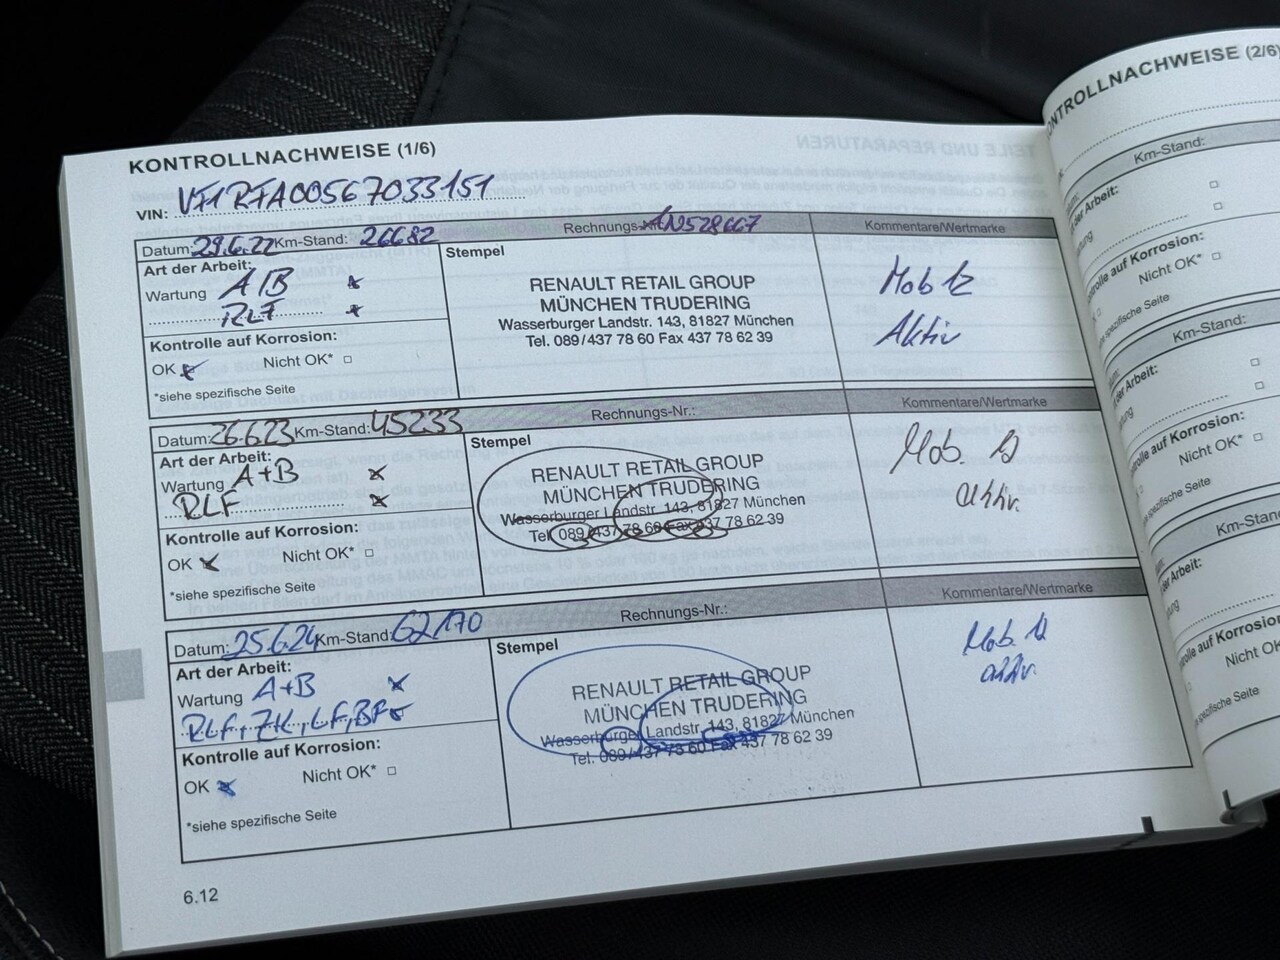 KONTROLLNACHWEISE (1/6)
VIN: VF1RFA00567033151
Datum: 29.6.22 Km-Stand: 26682 Rechnungs-Nr.: AN528667 Kommentare/Wertmarke
Art der Arbeit:
Wartung A/B
RLF
Kontrolle auf Korrosion:
OK Nicht OK*
*siehe spezifische Seite
Stempel
RENAULT RETAIL GROUP
MÜNCHEN TRUDERING
Wasserburger Landstr. 143, 81827 München
Tel. 089/437 78 60 Fax 437 78 62 39
Mob 12
Aktiv
Datum: 26.6.23 Km-Stand: 45233 Rechnungs-Nr.: Kommentare/Wertmarke
Art der Arbeit:
Wartung A+B
RLF
Kontrolle auf Korrosion:
OK Nicht OK*
*siehe spezifische Seite
Stempel
RENAULT RETAIL GROUP
MÜNCHEN TRUDERING
Wasserburger Landstr. 143, 81827 München
Tel. 089/437 78 60 Fax 437 78 62 39
Mob. 12
aktiv.
Datum: 25.6.24 Km-Stand: 62170 Rechnungs-Nr.: Kommentare/Wertmarke
Art der Arbeit:
Wartung A+B
RLF, ZK, LF, BF
Kontrolle auf Korrosion:
OK Nicht OK*
*siehe spezifische Seite
Stempel
RENAULT RETAIL GROUP
MÜNCHEN TRUDERING
Wasserburger Landstr. 143, 81827 München
Tel. 089/437 78 60 Fax 437 78 62 39
Mob. 12
aktiv.
6.12
KONTROLLNACHWEISE (2/6)
Km-Stand:
Arbeit:
Kontrolle auf Korrosion:
Nicht OK*
spezifische Seite
Km-Stand:
Arbeit:
Korrosion:
Nicht OK*
spezifische Seite
Km-Stand:
Arbeit:
Korrosion:
Nicht OK
spezifische Seite
TEILE UND REPARATUREN